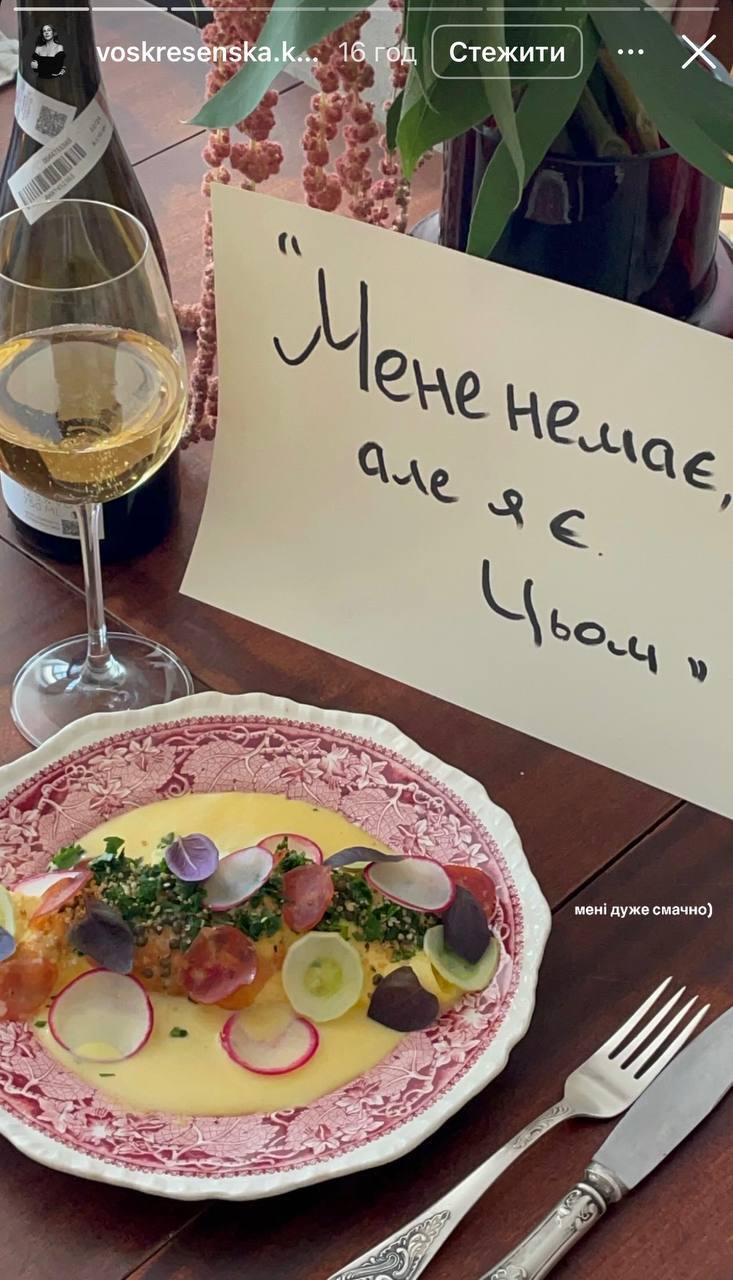 voskresenska.k... 16 год Стежити
"Мене немає,
але я є.
Цьом"
мені дуже смачно)